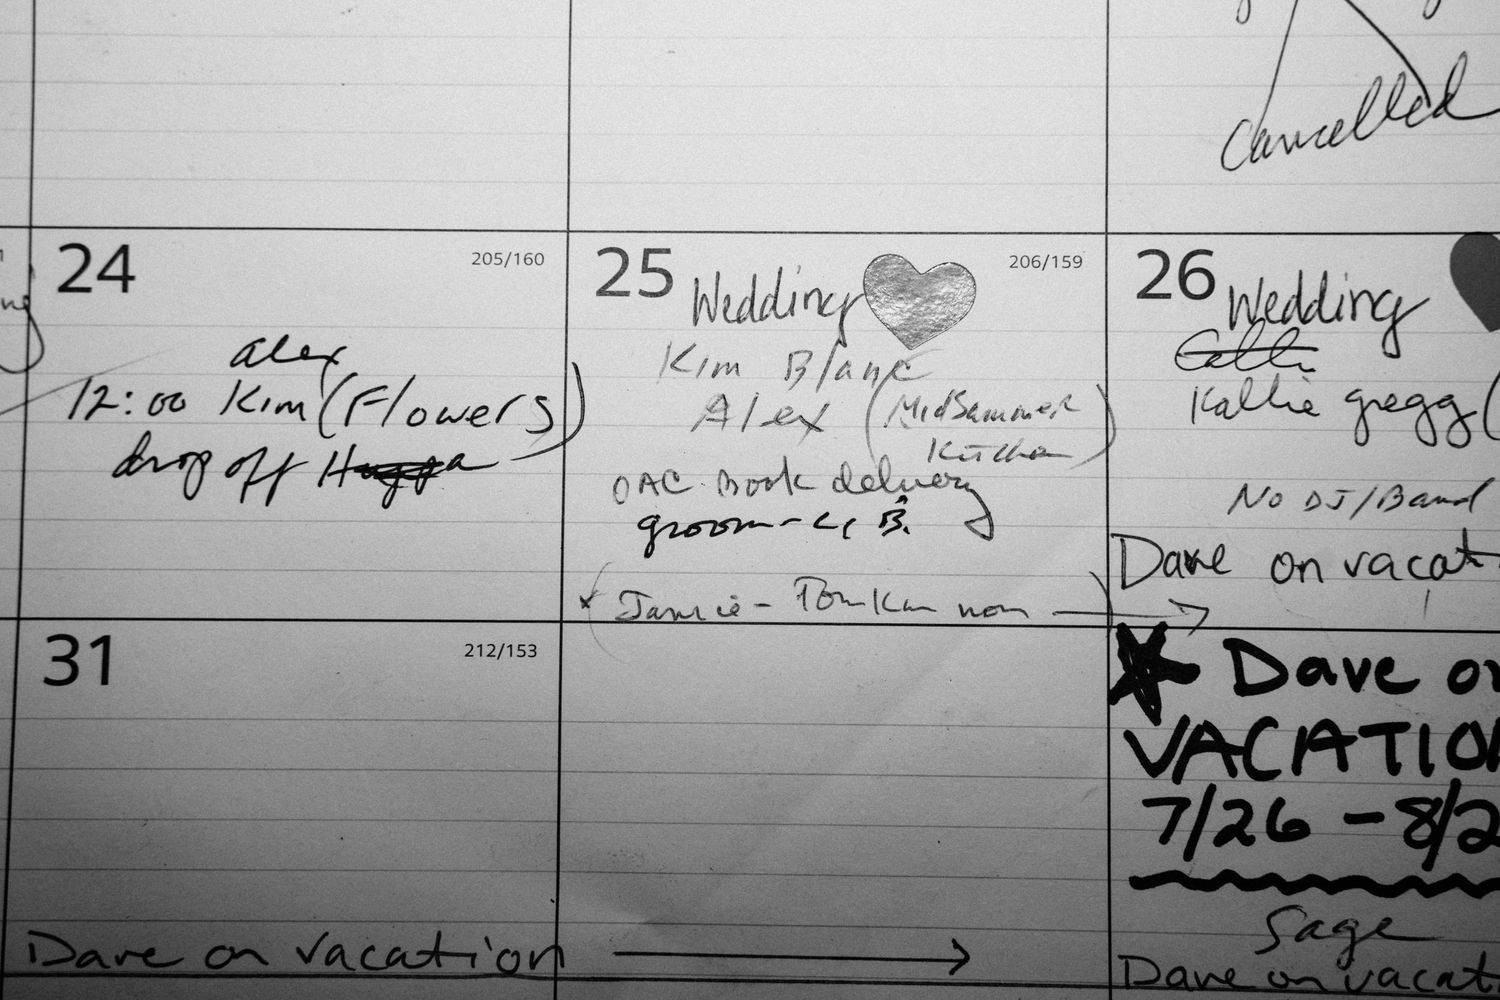 Cancelled
24
205/160
alex
12:00 Kim (Flowers)
drop off
25
206/159
Wedding
Kim Blanc
Alex (MidSummer
Kitchen)
OAC Book delivery
groom - B.
Jamie - Tom Kim
26
Wedding
Kallie gregg (
No DJ/Band
Dave on vacat
31
212/153
Dave on vacation
Dave on
VACATION
7/26 - 8/2
Sage
Dave on vacat